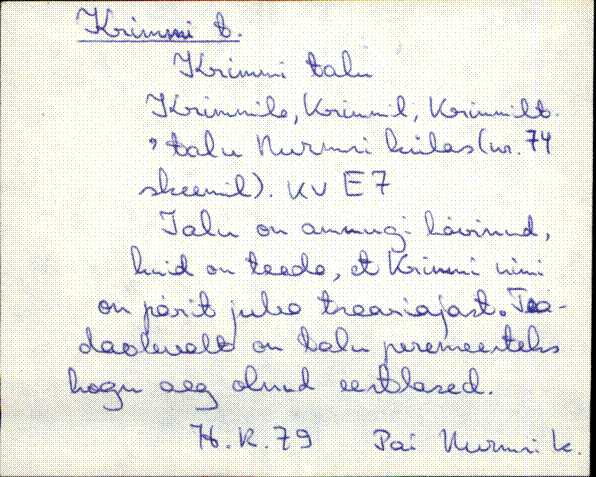 Krimmi t.
Krimmi talu
Krimmile, Krimmil, Krimmilt.
, talu Nurmsi külas (nr. 74
skeemil). KV E7
Talu on ammugi hävinud,
kuid on teada, et Krimmi nimi
on pärit juba tsaariajast. Tea-
daolevalt on talu peremeesteks
kogu aeg olnud eestlased.
H.K. 79 Pai Nurmsi k.